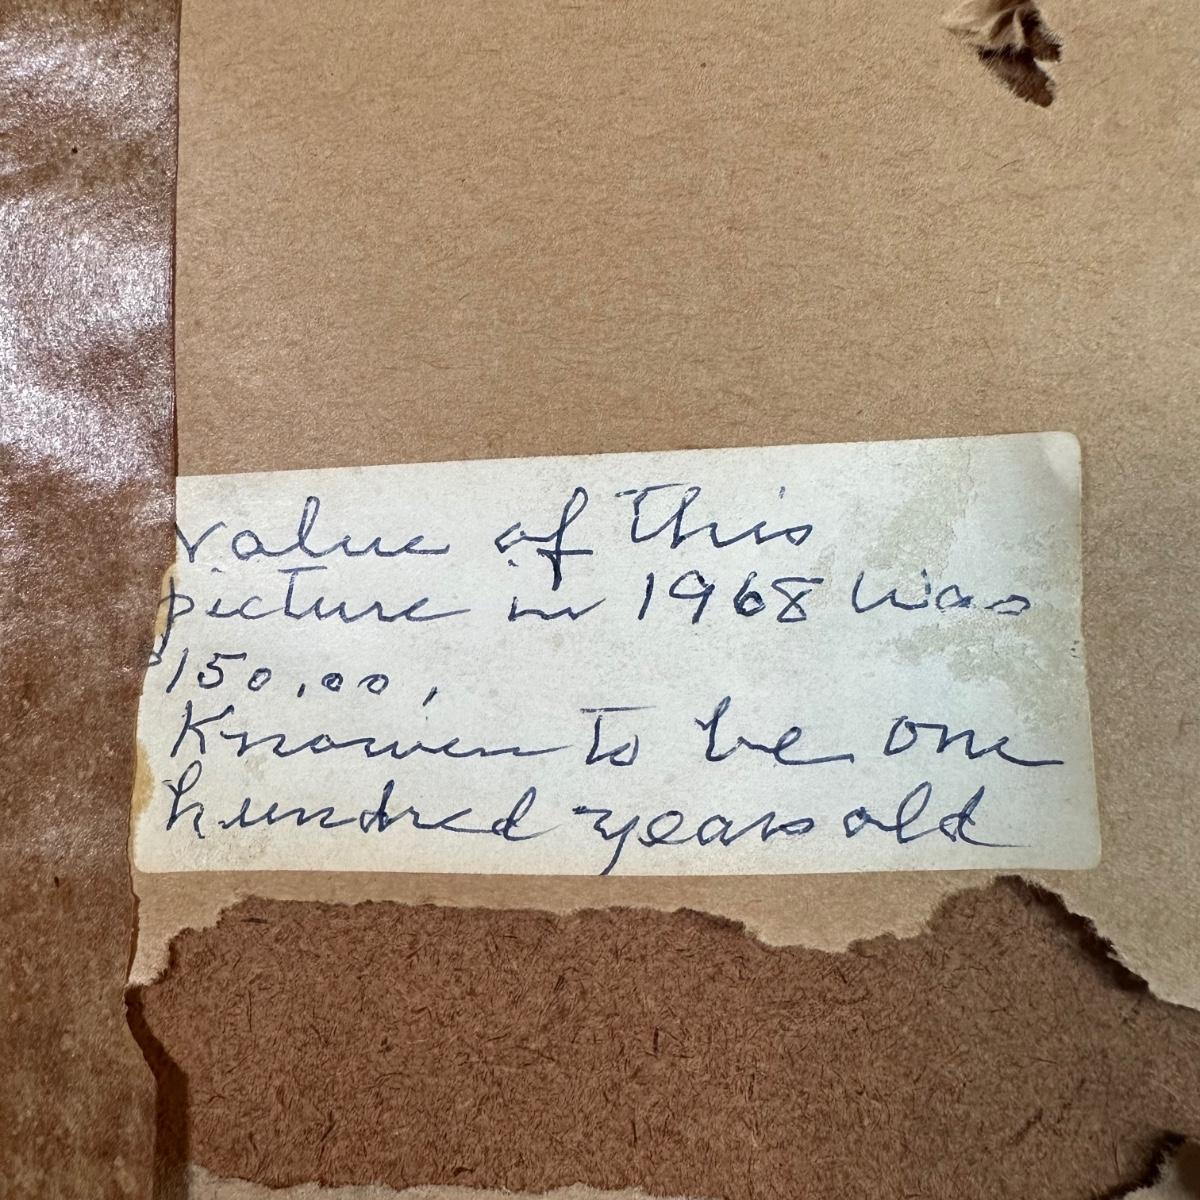 value of this
picture in 1968 was
$150.00,
Knowen to be one
hundred years old